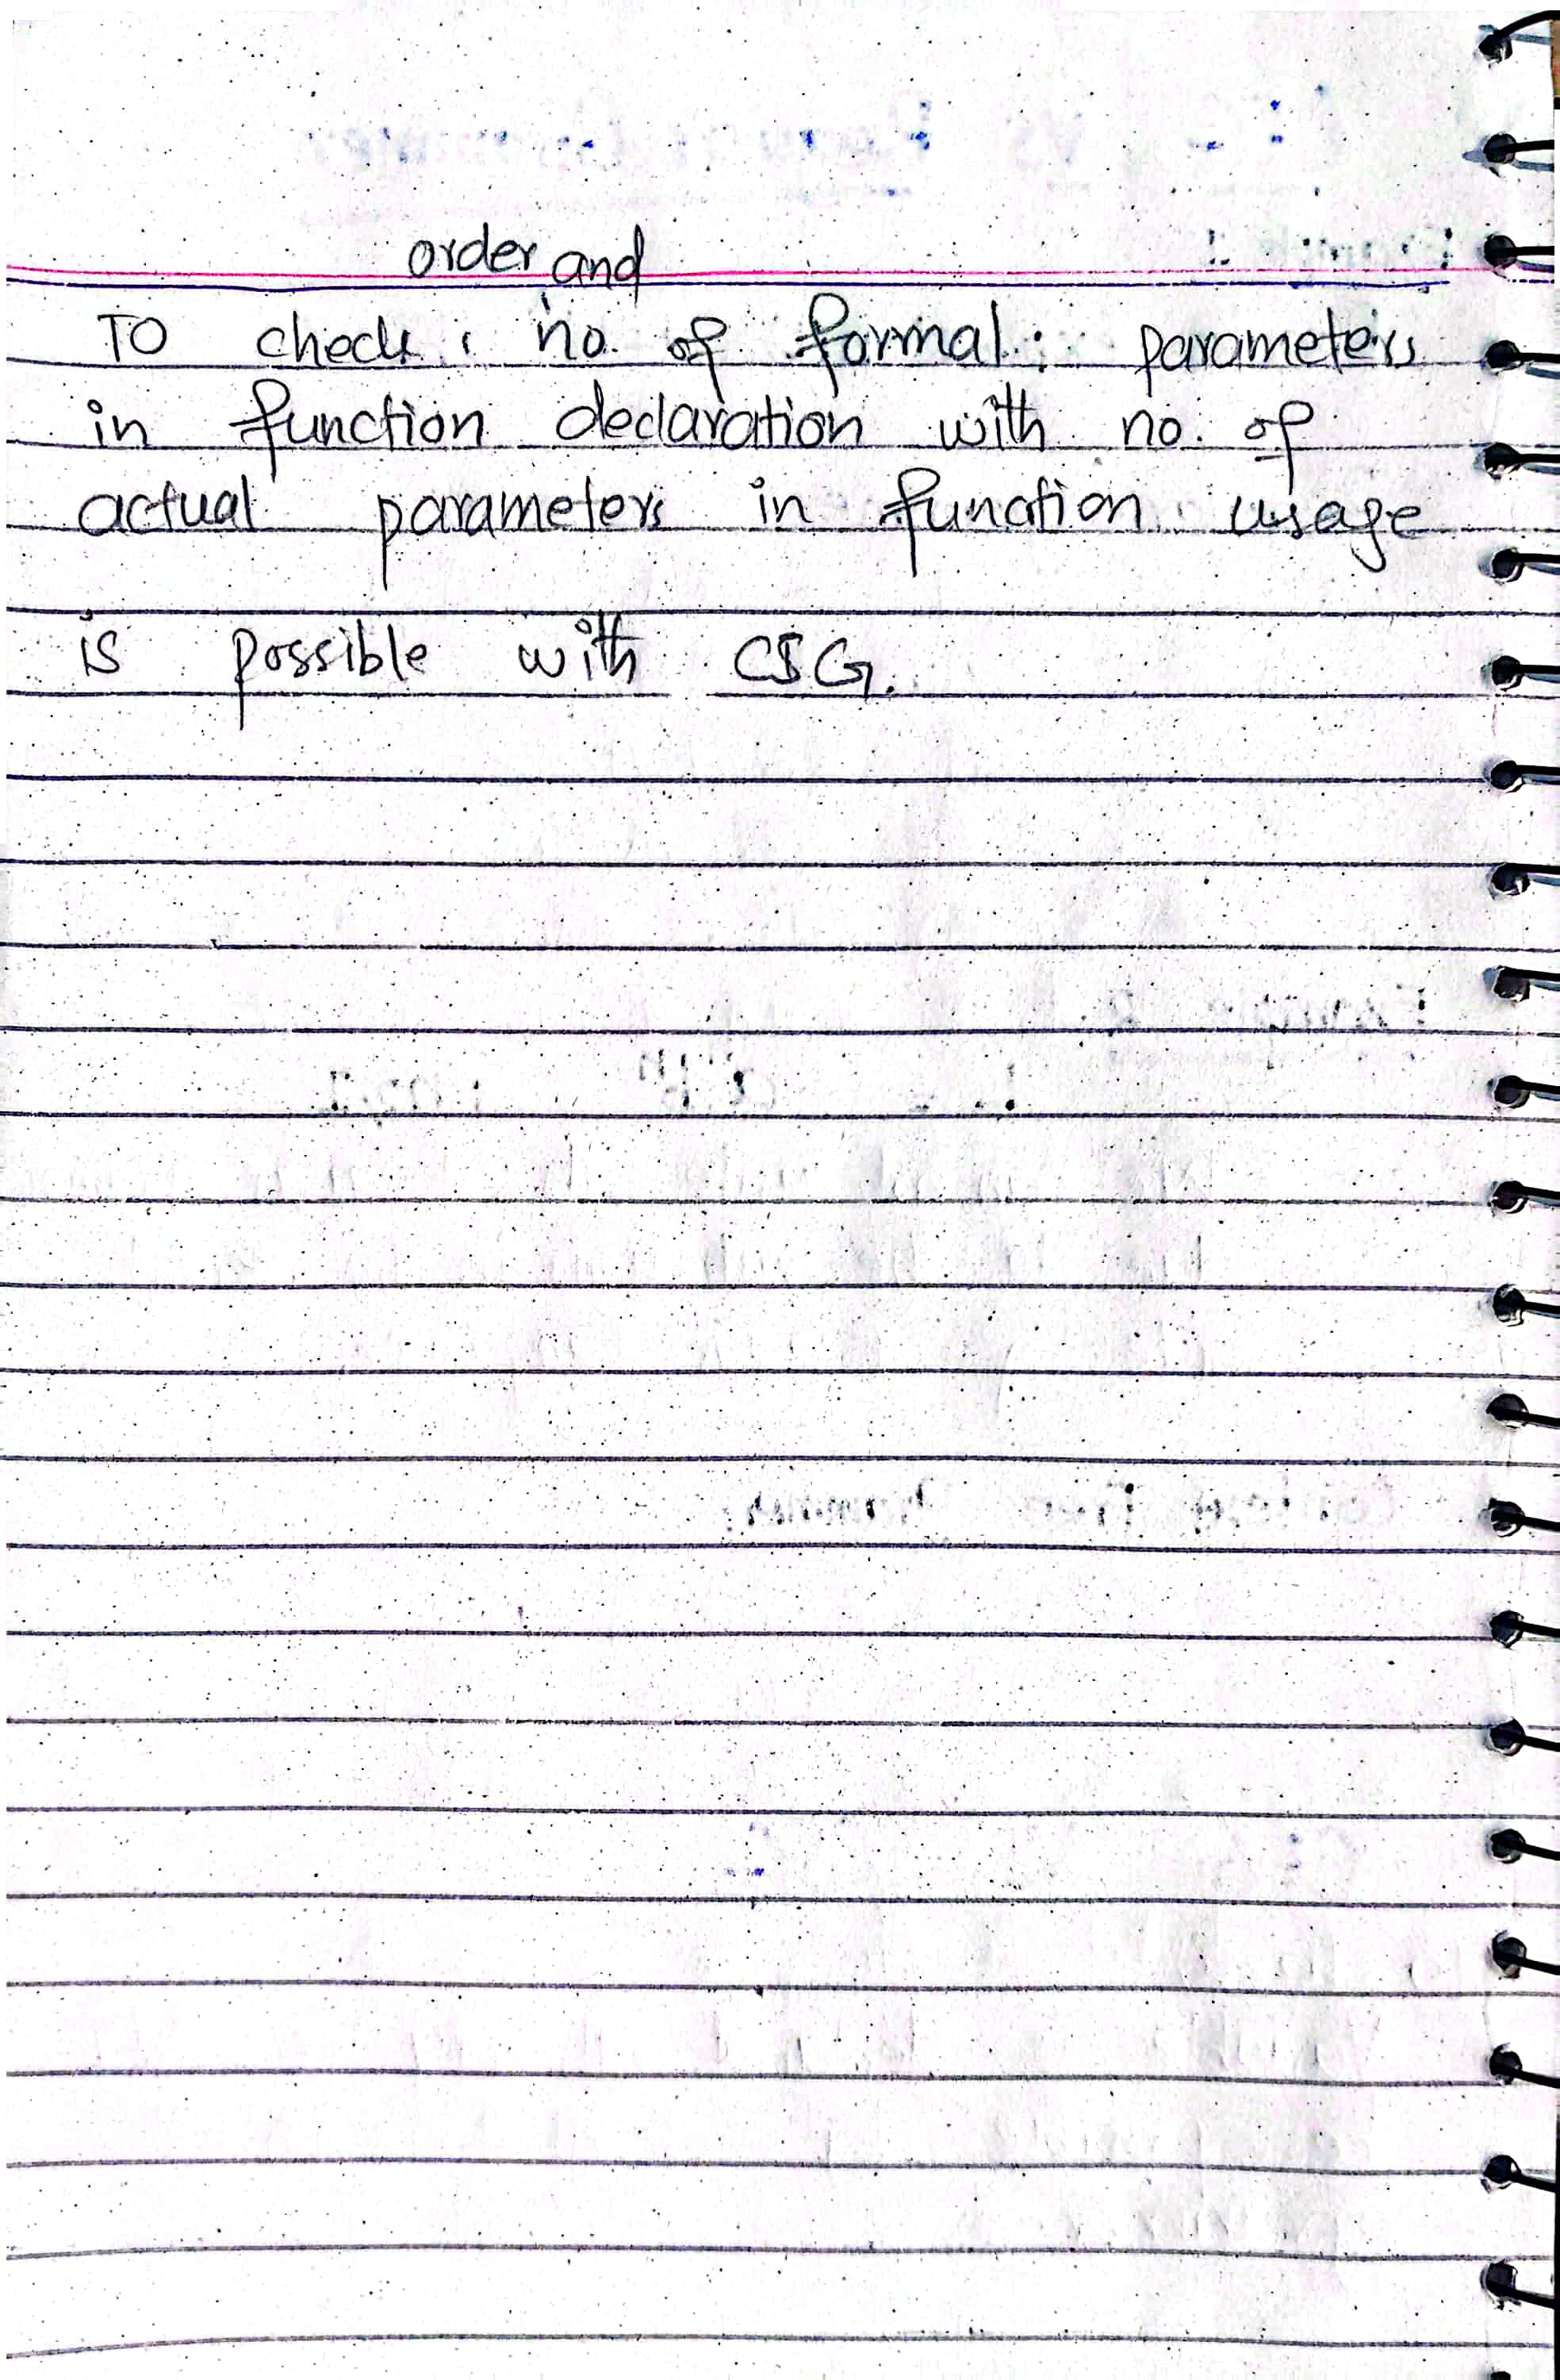 order and
TO check no. of formal parameters
in function declaration with no. of
actual parameters in function usage
is possible with CSG.